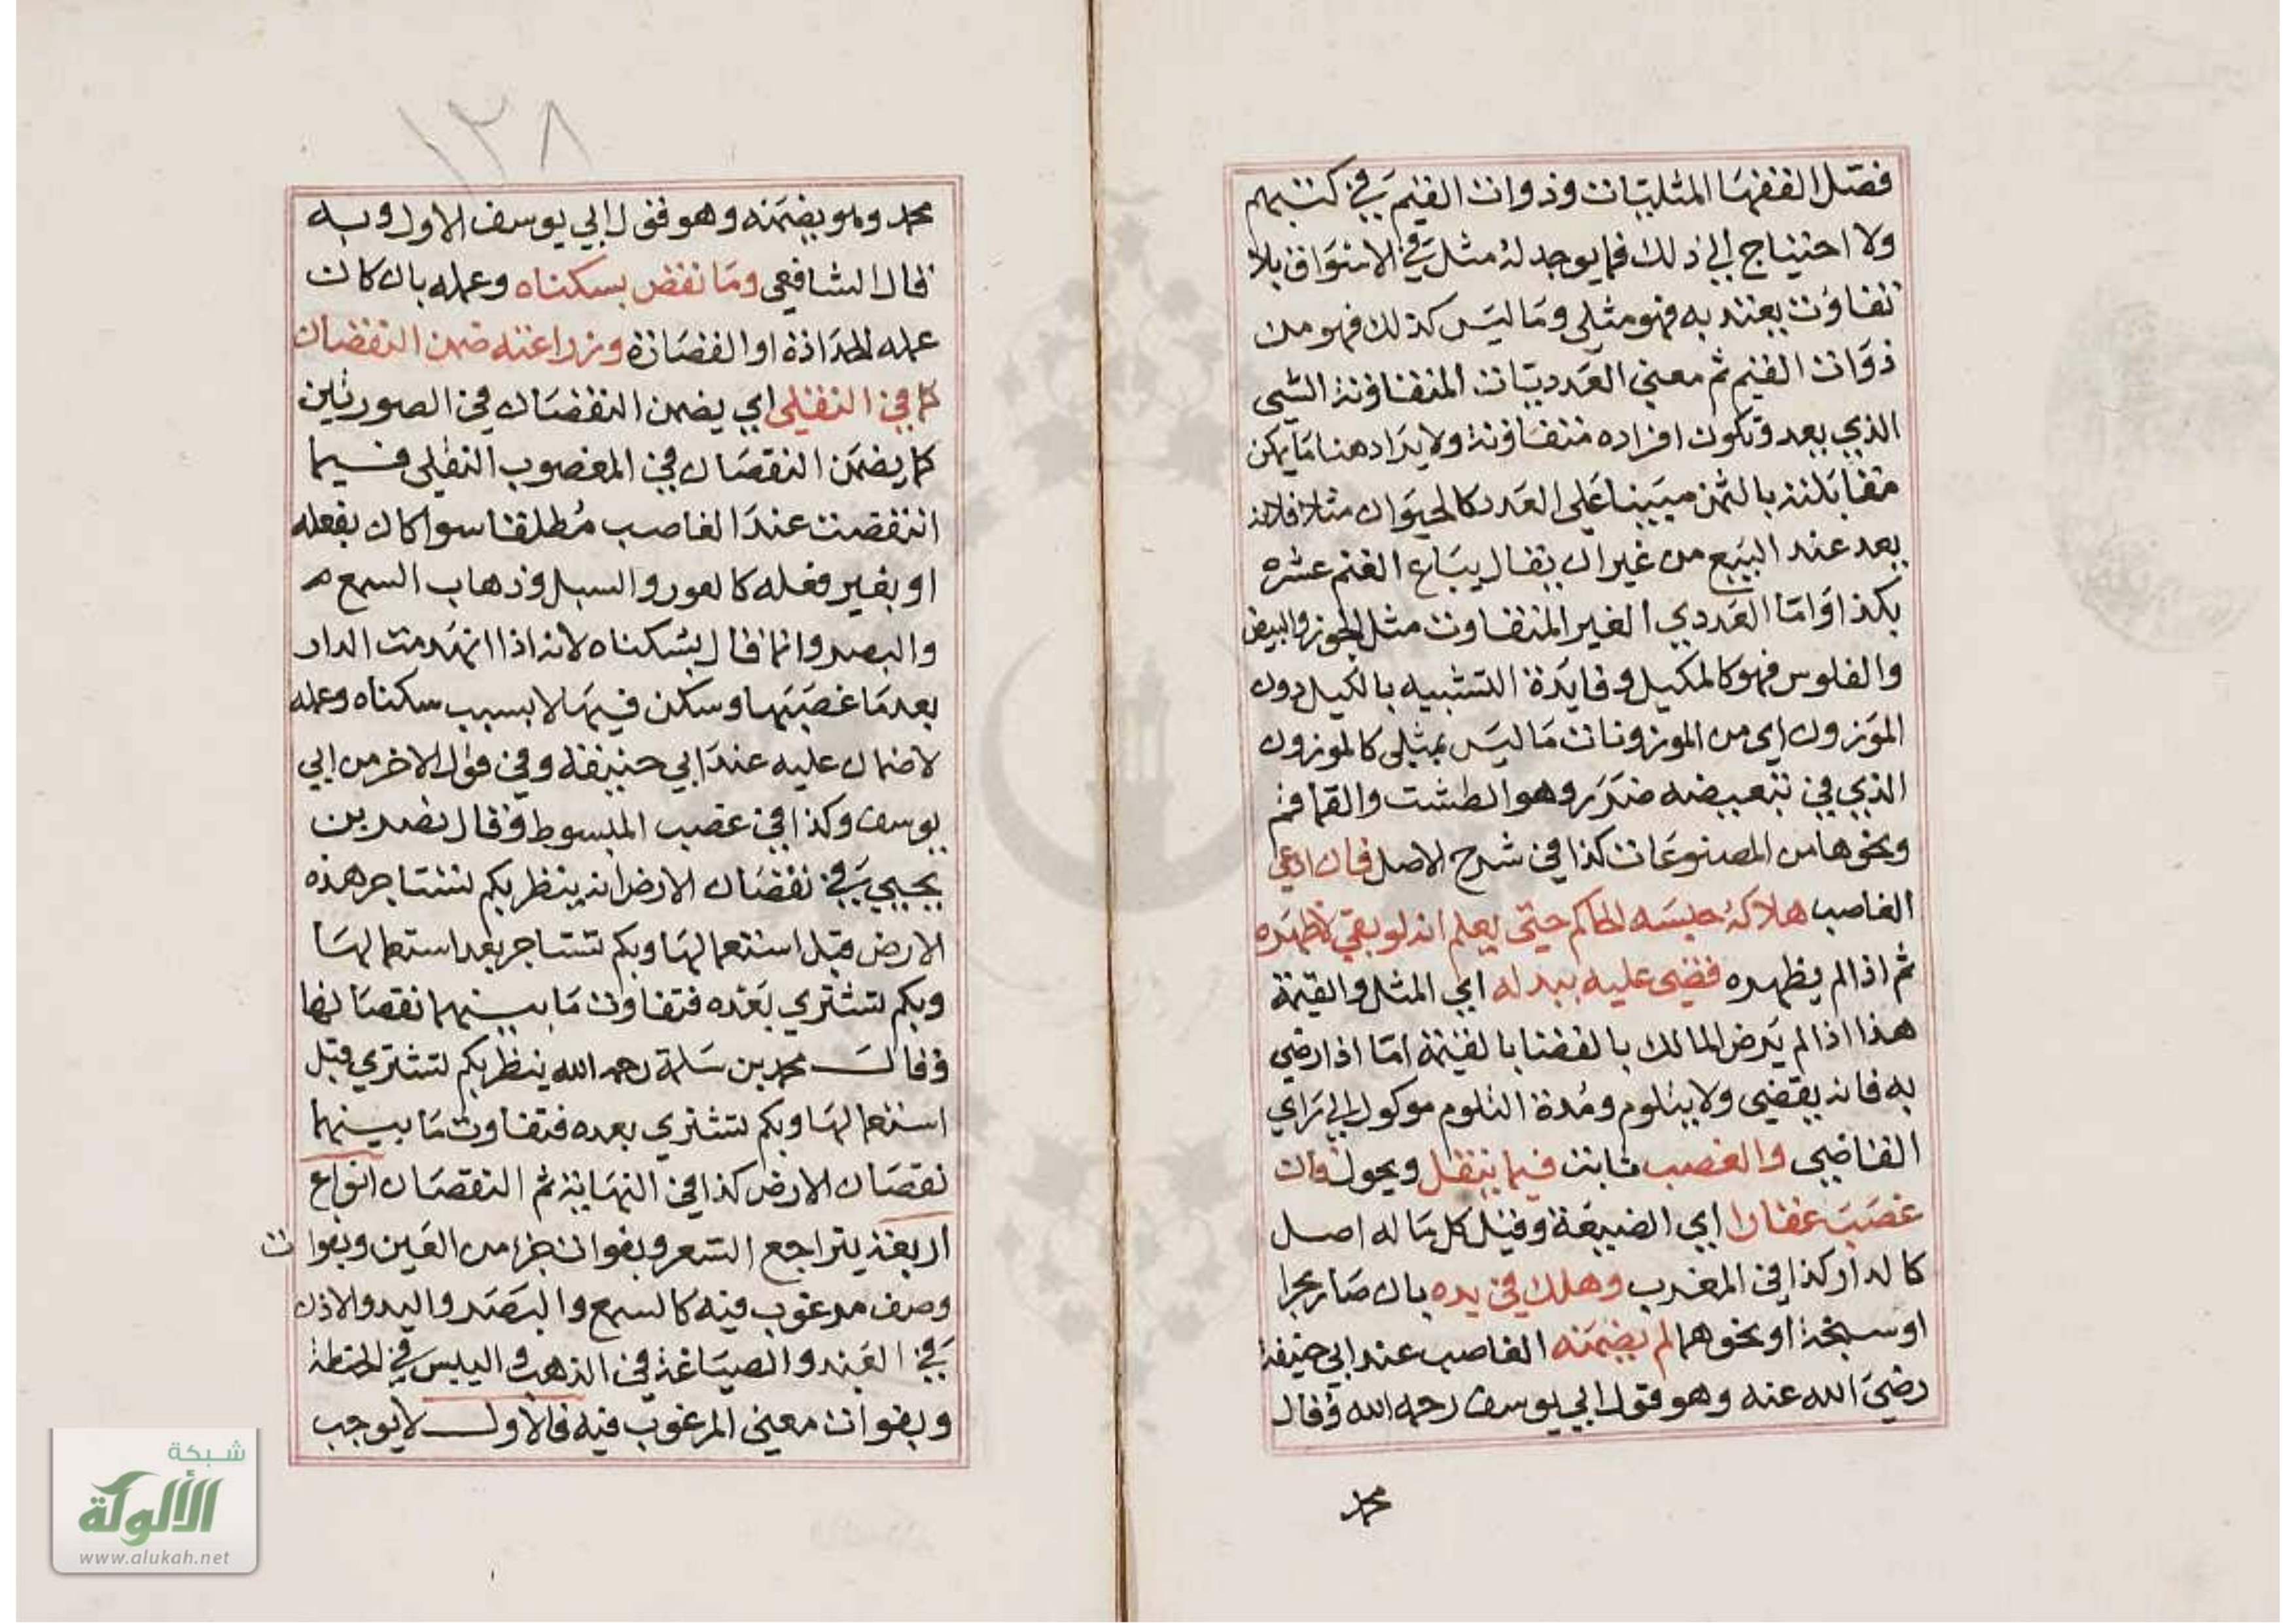 فصل الفقها المثليات وذوات القيم في كتبهم
ولا احتياج الي ذلك فما يوجد له مثل في الاسواق بلا
تفاوت يعتد به فهو مثلي وما ليس كذلك فهو من
ذوات القيم ثم معني العدديات المتفاوتة الشي
الذي يعد وتكون افراده متفاوتة ولا يراد هنا ما يكن
مقابلته بالثمن مبينا علي العدد كالحيوان مثلا فانه
يعد عند البيع من غير ان يقال يباع الغنم عشره
بكذا واما العددي الغير المتفاوت مثل الجوز والبيض
والفلوس فهو كالمكيل وفايدة التشبيه بالكيل دون
الموزون اي من الموزونات ما ليس بمثلي كالموزون
الذي في تبعيضه ضرر وهو الطشت والقماقم
ونحوها من المصنوعات كذا في شرح الاصل فان ادعي
الغاصب هلاكه حبسه الحاكم حتي يعلم انه لو بقي لاظهره
ثم اذا لم يظهره قضي عليه ببدله اي المثل والقيمة
هذا اذا لم يرض المالك بالقضا بالقيمة اما اذا رضي
به فانه يقضي ولا يتلوم ومدة التلوم موكول الي راي
القاضي والغصب ثابت فيما ينقل ويحول فان
غصب عقارا اي الضيعة وقيل كل ما له اصل
كالدار كذا في المغرب وهلك في يده بان صار بحرا
او سبخة او نحوهما لم يضمنه الغاصب عند ابي حنيفة
رضي الله عنه وهو قول ابي يوسف رحمه الله وقال
محمد
١٣٨
محمد وهو يضمنه وهو قول ابي يوسف الاول وبه
قال الشافعي وما نقض بسكناه وعمله بان كان
عمله الحدادة او القصارة وزراعته ضمن النقصان
كما في النقلي اي يضمن النقصان في الصورتين
كما يضمن النقصان في المغصوب النقلي فيما
انتقصت عند الغاصب مطلقا سوا كان بفعله
او بغير فعله كالعور والسبل وذهاب السمع
والبصر وانما قال بسكناه لانه اذا انهدمت الدار
بعد ما غصبها وسكن فيها لا بسبب سكناه وعمله
لا ضمان عليه عند ابي حنيفة وفي قول الاخر من ابي
يوسف وكذا في غصب المبسوط وقال نصر بن
يحيي في نقصان الارض انه ينظر بكم تستاجر هذه
الارض قبل استعمالها وبكم تستاجر بعد استعمالها
وبكم تشتري بعده فتفاوت ما بينهما نقصانها
وقال محمد بن سلمة رحمه الله ينظر بكم تشتري قبل
استعمالها وبكم تشتري بعده فتفاوت ما بينهما
نقصان الارض كذا في النهاية ثم النقصان انواع
اربعة يتراجع السعر وبفوات جزا من العين وبفوات
وصف مرغوب فيه كالسمع والبصر واليد والاذن
في العبد والصياغة في الذهب واليبس في الحنطة
وبفوات معني المرغوب فيه فالاول لا يوجب
شبكة
الألوكة
www.alukah.net